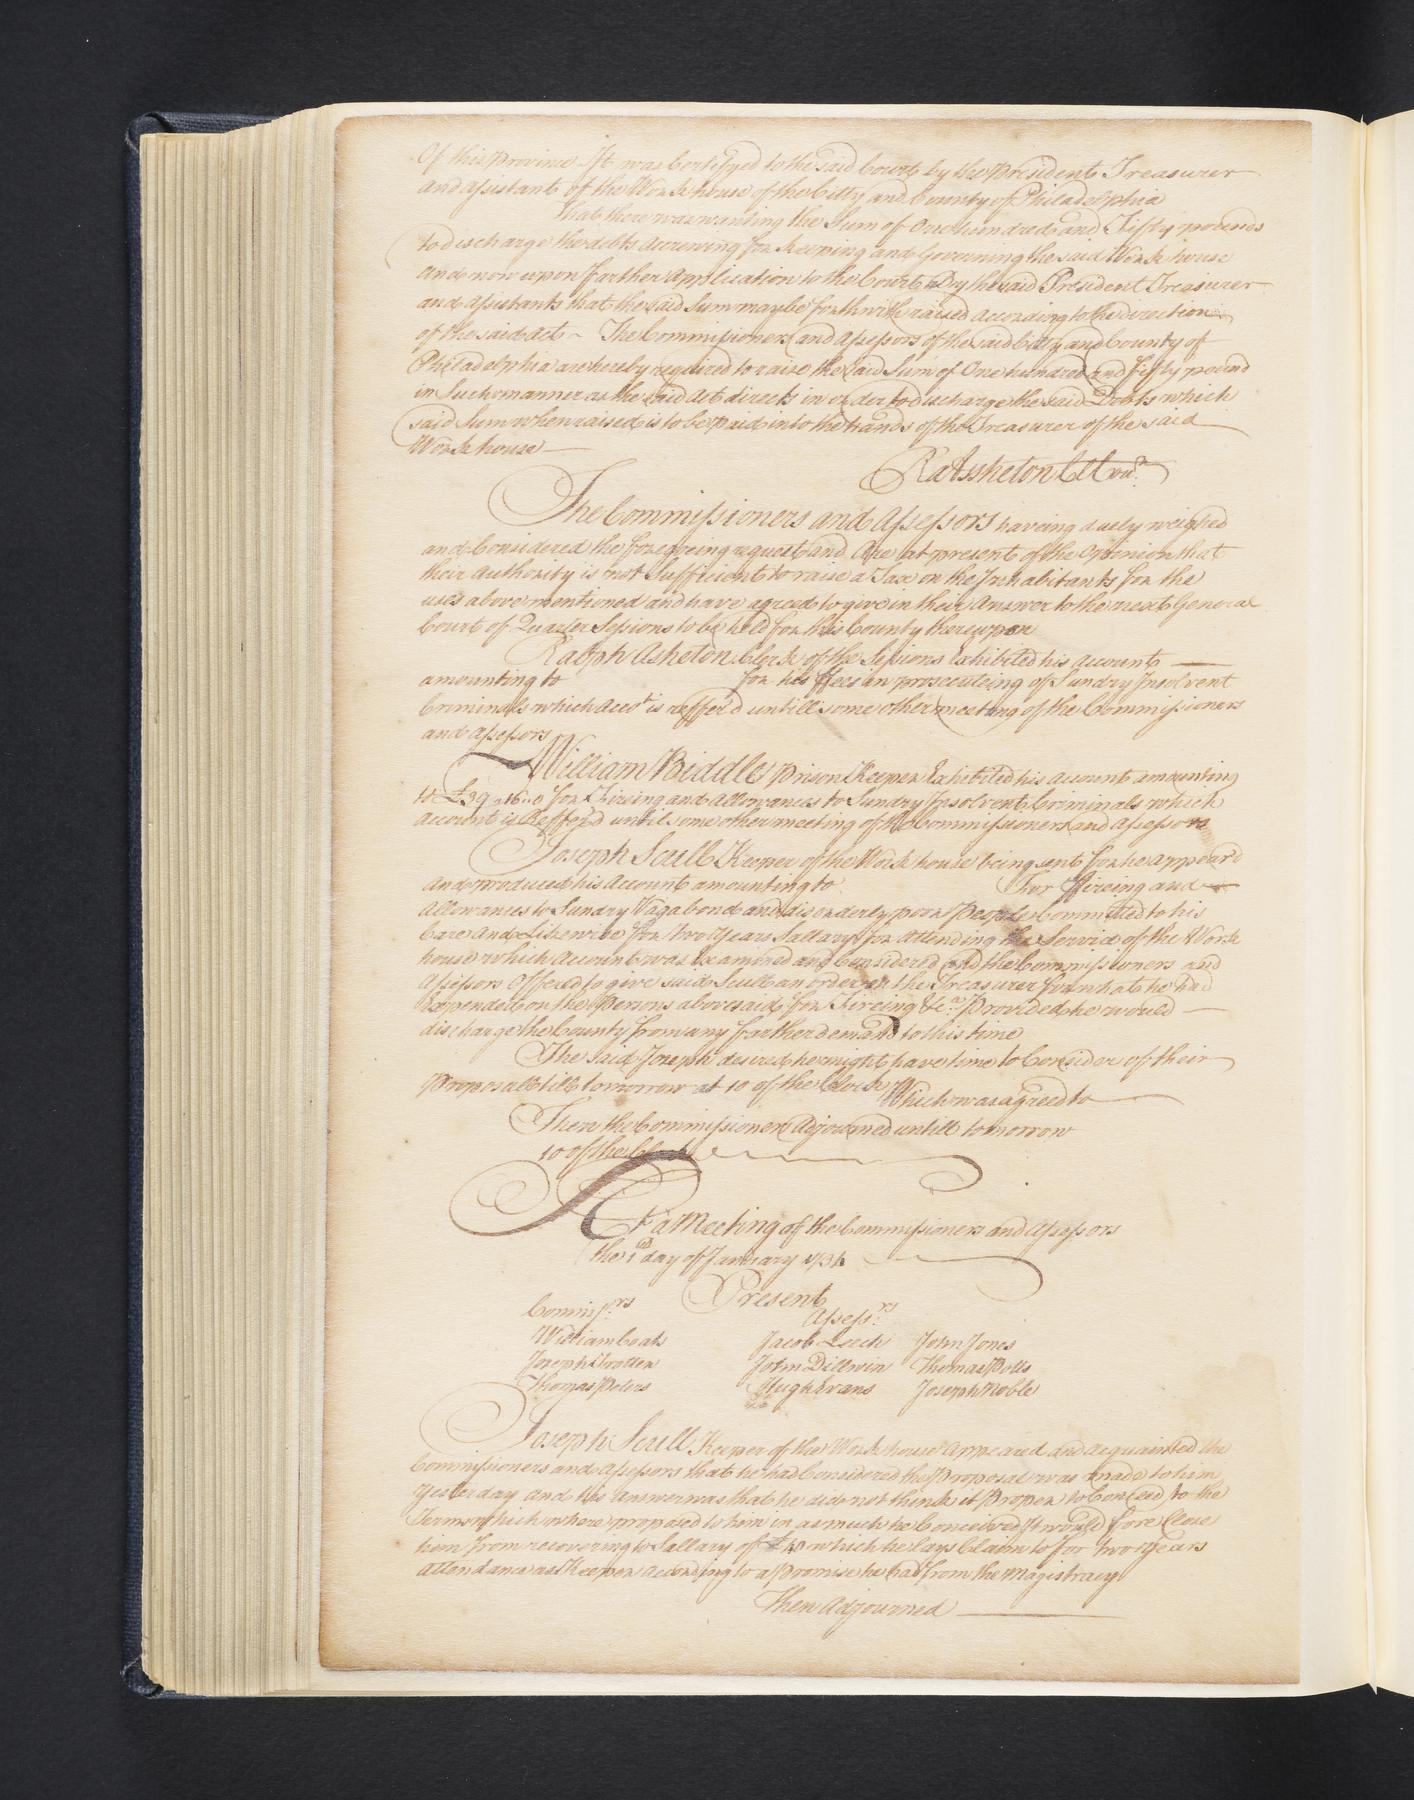 Of this Province It was Certifyed to the said Court by the President Treasurer
and assistant of the Workhouse of the Citty and County of Philadelphia
That there was wanting the Sum of One hundred and Fifty pounds
to discharge the debts accrewing for keeping and Governing the said Work house
and now upon farther Application to the Court By the said President Treasurer
and assistants that the said Sum may be forthwith raised according to the direction
of the said act - The Commissioners and Assessors of the said Citty and County of
Philadelphia are hereby required to raise the said Sum of One hundred and fifty pound
in Such manner as the said Act directs in order to discharge the said Debts which
said Sum when raised is to be paid into the hands of the Treasurer of the said
Work house
Ra Assheton Cl Cur.
The Commissioners and Assessors haveing duely weighed
and Considered the foregoeing request and Are at present of the Opinion that
their Authority is not Sufficient to raise a Tax on the Inhabitants for the
uses above mentioned and have agreed to give in their Answer to the next General
Court of Quarter Sessions to be held for this County thereupon
Ralph Asheton Clerk of the Sessions Exhibited his account
amounting to for his ffees in prosecuteing of Sundry Insolvent
Criminals which Acco.t is reffer'd untill some other meeting of the Commissioners
and Assessors
William Biddle Prison Keeper Exhibited his account amounting
to £39..16..0 for Fireing and Allowances to Sundry Insolvent Criminals which
Account is Reffer'd until some other meeting of the Commissioners and Assessors
Joseph Scull Keeper of the Work house being sent for he appear'd
and produced his Account amounting to For ffireing and
Allowances to Sundry Vagabond and disorderly poor People Committed to his
Care and Likewise for two Years Sallary for Attending the Service of the Work
house which Account was Examined and Considered and the Commissioners and
Assessors Offered to give said Scull an order on the Treasurer for what he had
Expended on the Persons abovesaid for Fireing &c.a Provided he would
discharge the County from any farther demand to this time
The said Joseph desired he might have time to Consider of their
Proposall till tomorrow at 10 of the Clock Which was agreed to
Then the Commissioners Adjourned untill tomorrow
10 of the Clock
At a Meeting of the Commissioners and Assessors
the 1 day of January 1734
Present
Commiss.rs
Assess.rs
William Coats Jacob Leech John Jones
Joseph Trotter John Dillwin Thomas Potts
Thomas Peters Hugh Evans Joseph Noble
Joseph Scull Keeper of the Work house Appeared and acquainted the
Commissioners and Assessors that he had Considered the Proposal was made to him
yesterday and his Answer was that he did not think it Proper to Conceed to the
Terms which where proposed to him in as much he Conceived It would fore Close
him from recovering Sallary of £40 which he lays Claim to for two Years
Attendance as Keeper according to a Promise he had from the Magistracy
Then Adjourned